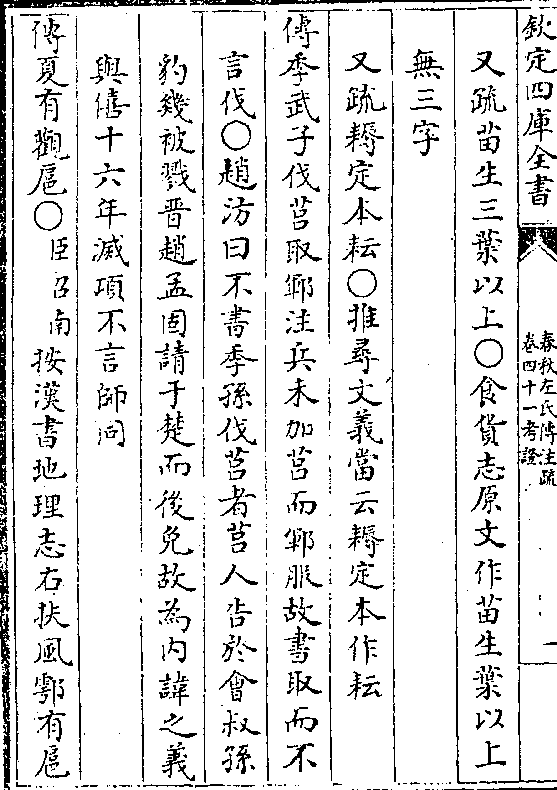 欽定四庫全書
春秋左氏傳注疏
卷四十一考證
一
又疏苗生三葉以上○食貨志原文作苗生葉以上
無三字
又疏耨定本耘○推尋文義當云耨定本作耘
傳季武子伐莒取鄆注兵未加莒而鄆服故書取而不
言伐○趙汸曰不書季孫伐莒者莒人告於會叔孫
豹幾被戮晉趙孟固請于楚而後免故為內諱之義
與僖十六年滅項不言師同
傳夏有觀扈○臣召南按漢書地理志右扶風鄠有扈